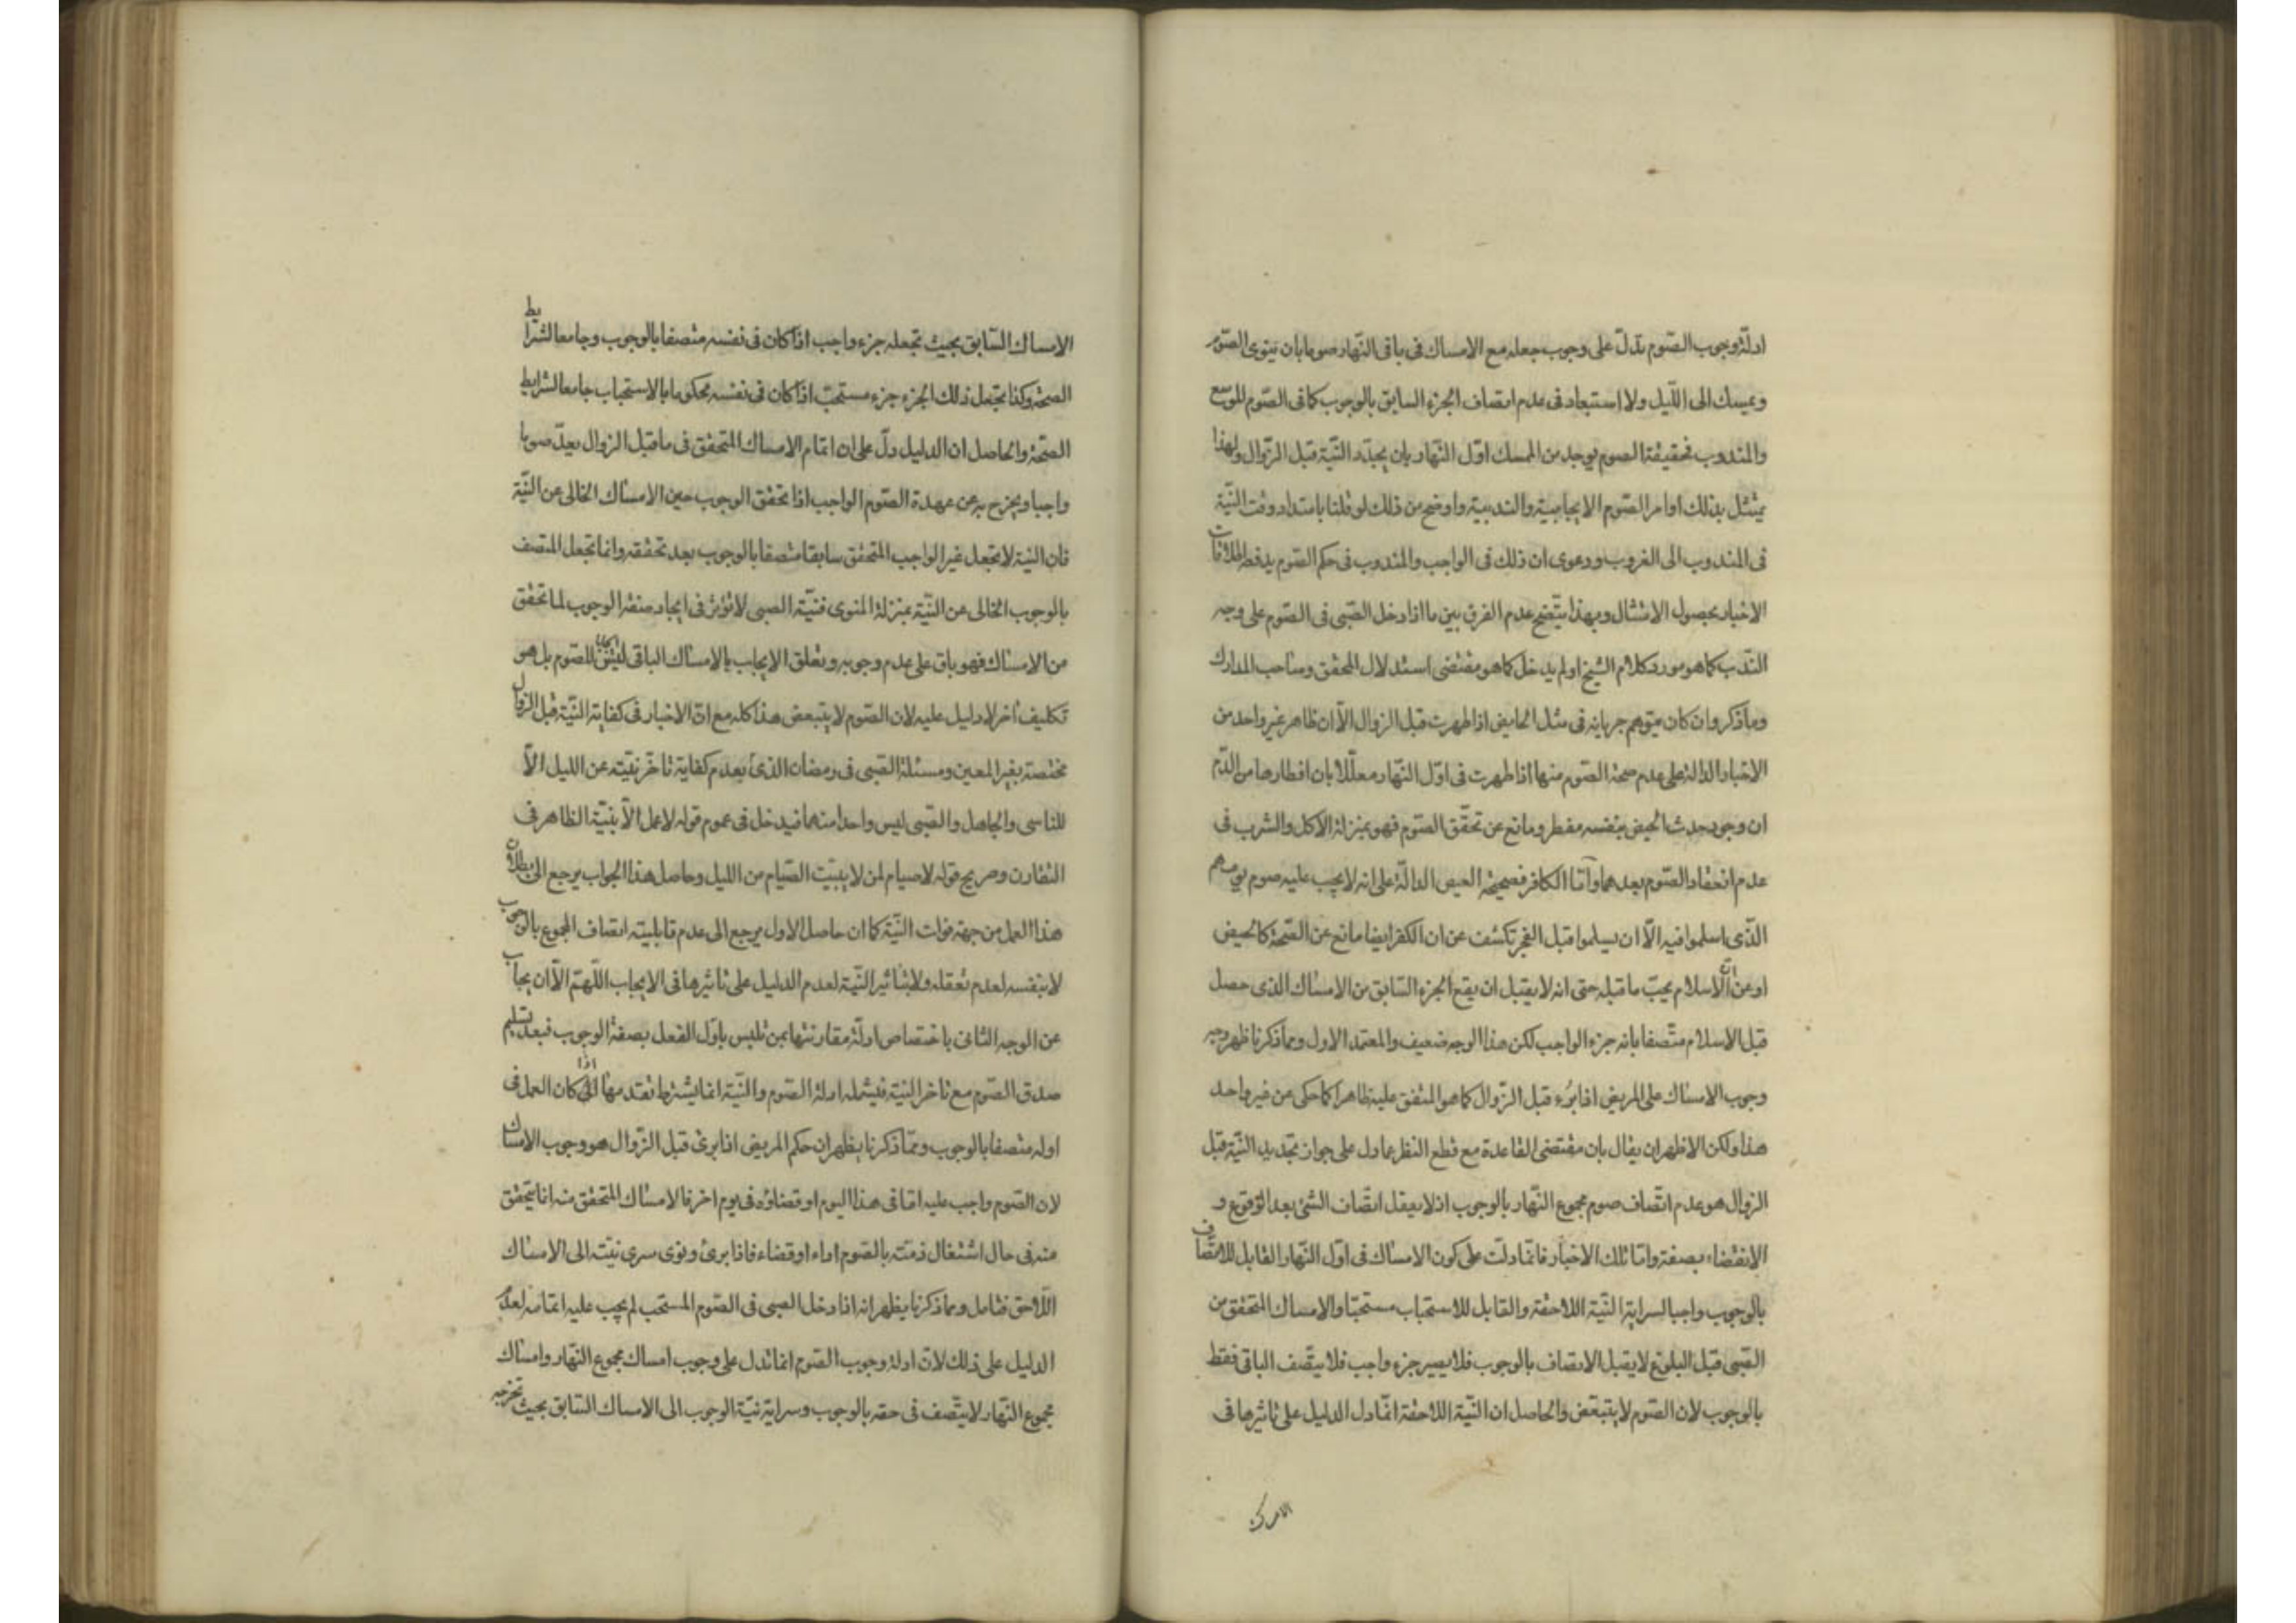 ادلة وجوب الصّوم تدلّ على وجوب جعله مع الامساك فى باقى النّهار صوما بان ينوى الصّوم
ويمسك الى اللّيل ولا استبعاد فى عدم اتصاف الجزء السابق بالوجوب كما فى الصّوم الموسّع
والمندوب فحقيقة الصوم يوجد من الممسك اوّل النّهار بان يجدّد النّية قبل الزّوال ولهذا
يمتثل بذلك اوامر الصّوم الايجابية والندبية واوضح من ذلك لو قلنا بامتداد وقت النّية
فى المندوب الى الغروب ودعوى ان ذلك فى الواجب والمندوب فى حكم الصّوم يدفعها اطلاقات
الاخبار بحصول الامتثال وبهذا يتّضح عدم الفرق بين ما اذا دخل الصّبى فى الصّوم على وجه
النّدب كما هو مورد كلام الشيخ او لم يدخل كما هو مقتضى استدلال المحقق وصاحب المدارك
وما ذكر وان كان يتوهم جريانه فى مثل الحايض اذا طهرت قبل الزوال الّا ان ظاهر غير واحد من
الاخبار الدالة على عدم صحة الصّوم منها اذا طهرت فى اوّل النّهار معلّلا بان افطارها من الدّم
ان وجود حدث الحيض بنفسه مفطر ومانع عن تحقّق الصّوم فهو بمنزلة الاكل والشرب فى
عدم انعقاد الصّوم بعدهما وامّا الكافر فصحيحة العيص الدالّة على انه لا يجب عليه صوم يومهم
الذّى اسلموا فيه الّا ان يسلموا قبل الفجر تكشف عن ان الكفر ايضا مانع عن الصّحة كالحيض
او عن انّ الاسلام يجبّ ما قبله حتى انه لا يقبل ان يقع الجزء السّابق من الامساك الذى حصل
قبل الاسلام متّصفا بانه جزء الواجب لكن هذا الوجه ضعيف والمعتمد الاول ومما ذكرنا ظهر وجه
وجوب الامساك على المريض اذا برء قبل الزّوال كما هو المتفق عليه ظاهرا كما حكى عن غير واحد
هذا ولكن الاظهر ان يقال بان مقتضى القاعدة مع قطع النظر عما دل على جواز تجديد النّية قبل
الزوال هو عدم اتّصاف صوم مجموع النّهار بالوجوب اذ لا يعقل اتّصاف الشئ بعد الوقوع و
الانقضاء بصفة وامّا تلك الاخبار فانّما دلت على كون الامساك فى اوّل النّهار القابل للاتّصاف
بالوجوب واجبا لسراية النّية اللاحقة والقابل للاستحباب مستحبّا والامساك المتحقق من
الصّبى قبل البلوغ لا يقبل الاتصاف بالوجوب فلا يصير جزء واجب فلا يتّصف الباقى فقط
بالوجوب لان الصّوم لا يتبعّض والحاصل ان النّية اللاحقة انّما دل الدليل على تاثيرها فى
الامساك السّابق بحيث تجعله جزء واجب اذا كان فى نفسه متصفا بالوجوب وجامعا لشرايط
الصحّة وكذا تجعل ذلك الجزء جزء مستحبّ اذا كان فى نفسه محكوما بالاستحباب جامعا لشرايط
الصحّة والحاصل ان الدليل دلّ على ان اتمام الامساك المتحقق فى ما قبل الزوال يعدّ صوما
واجبا ويخرج به عن عهدة الصّوم الواجب اذا تحقق الوجوب حين الامساك الخالى عن النّية
فان النيّة لا تجعل غير الواجب المتحقق سابقا متصفا بالوجوب بعد تحققه وانما تجعل المتصف
بالوجوب الخالى عن النّية بمنزلة المنوى فنيّة الصبى لا تؤثر فى ايجاد صفة الوجوب لما تحقق
من الامساك فهو باق على عدم وجوبه وتعلق الايجاب بالامساك الباقى ليس ايجابا للصّوم بل هو
تكليف آخر لا دليل عليه لان الصّوم لا يتبعض هذا كله مع انّ الاخبار فى كفاية النّية قبل الزوال
مختصة بغير المعين ومسئلة الصّبى فى رمضان الذى بعدم كفاية تاخّر نيّته عن الليل الّا
للناسى والجاهل والصّبى ليس واحدا منهما فيدخل فى عموم قوله لا عمل الّا بنيّة الظاهر فى
التقارن وصريح قوله لا صيام لمن لا يبيّت الصّيام من الليل وحاصل هذا الجواب يرجع الى بطلان
هذا العمل من جهة فوات النّية كما ان حاصل الاول يرجع الى عدم قابلية اتصاف المجموع بالوجوب
لا بنفسه لعدم تعقله ولا بتاثير النّية لعدم الدليل على تاثيرها فى الايجاب اللّهمّ الّا ان يجاب
عن الوجه الثانى باختصاص ادلّة مقارنتها بمن تلبس باوّل الفعل بصفة الوجوب فبعد تسليم
صدق الصّوم مع تاخر النيّة فيشمله ادلة الصّوم والنّية انما يشترط تقدمها اذا كان العمل فى
اوله متصفا بالوجوب وممّا ذكرنا يظهر ان حكم المريض اذا برئ قبل الزّوال هو وجوب الامساك
لان الصّوم واجب عليه امّا فى هذا اليوم او قضاؤه فى يوم اخر فالامساك المتحقق منه انما يتحقق
منه فى حال اشتغال ذمّته بالصّوم اداء او قضاء فاذا برئ ونوى سرى نيّته الى الامساك
اللّاحق فتامل ومما ذكرنا يظهر انه اذا دخل الصبى فى الصّوم المستحب لم يجب عليه اتمامه لعدم
الدليل على ذلك لانّ ادلة وجوب الصّوم انما تدل على وجوب امساك مجموع النّهار وامساك
مجموع النّهار لا يتّصف فى حقه بالوجوب وسراية نيّة الوجوب الى الامساك السّابق بحيث تخرجه